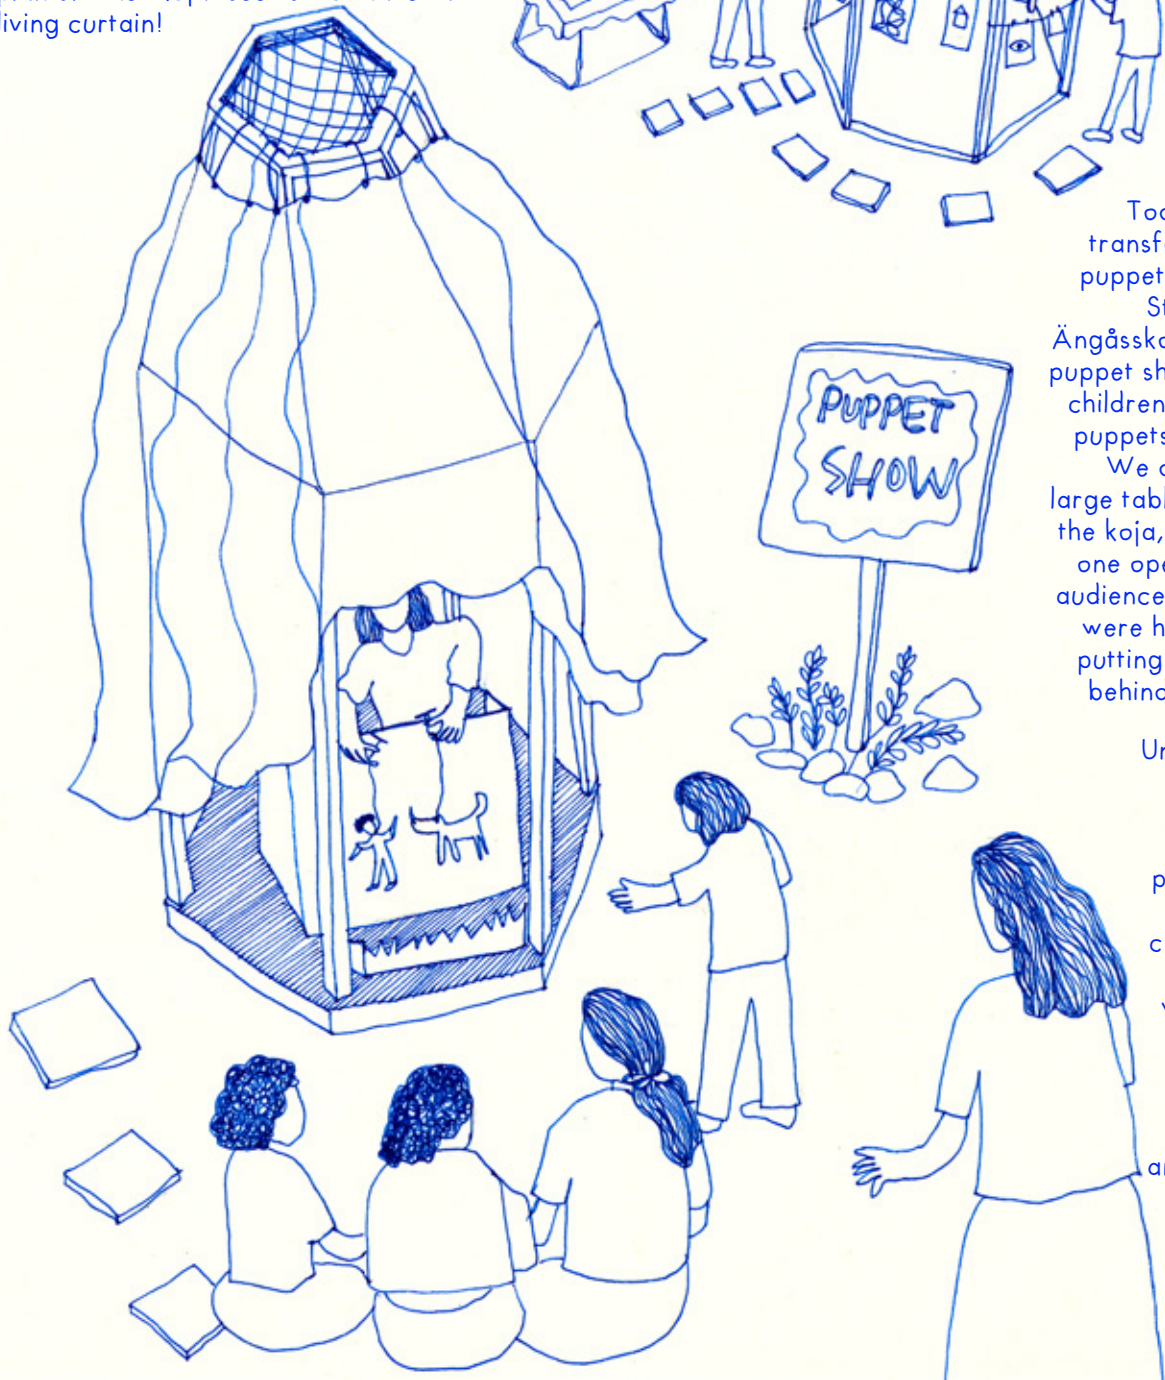 living curtain!
PUPPET
SHOW
puppet
Ängåssko
puppet sh
children
puppets
We
large tabl
the koja,
one ope
audience
were h
putting
behind